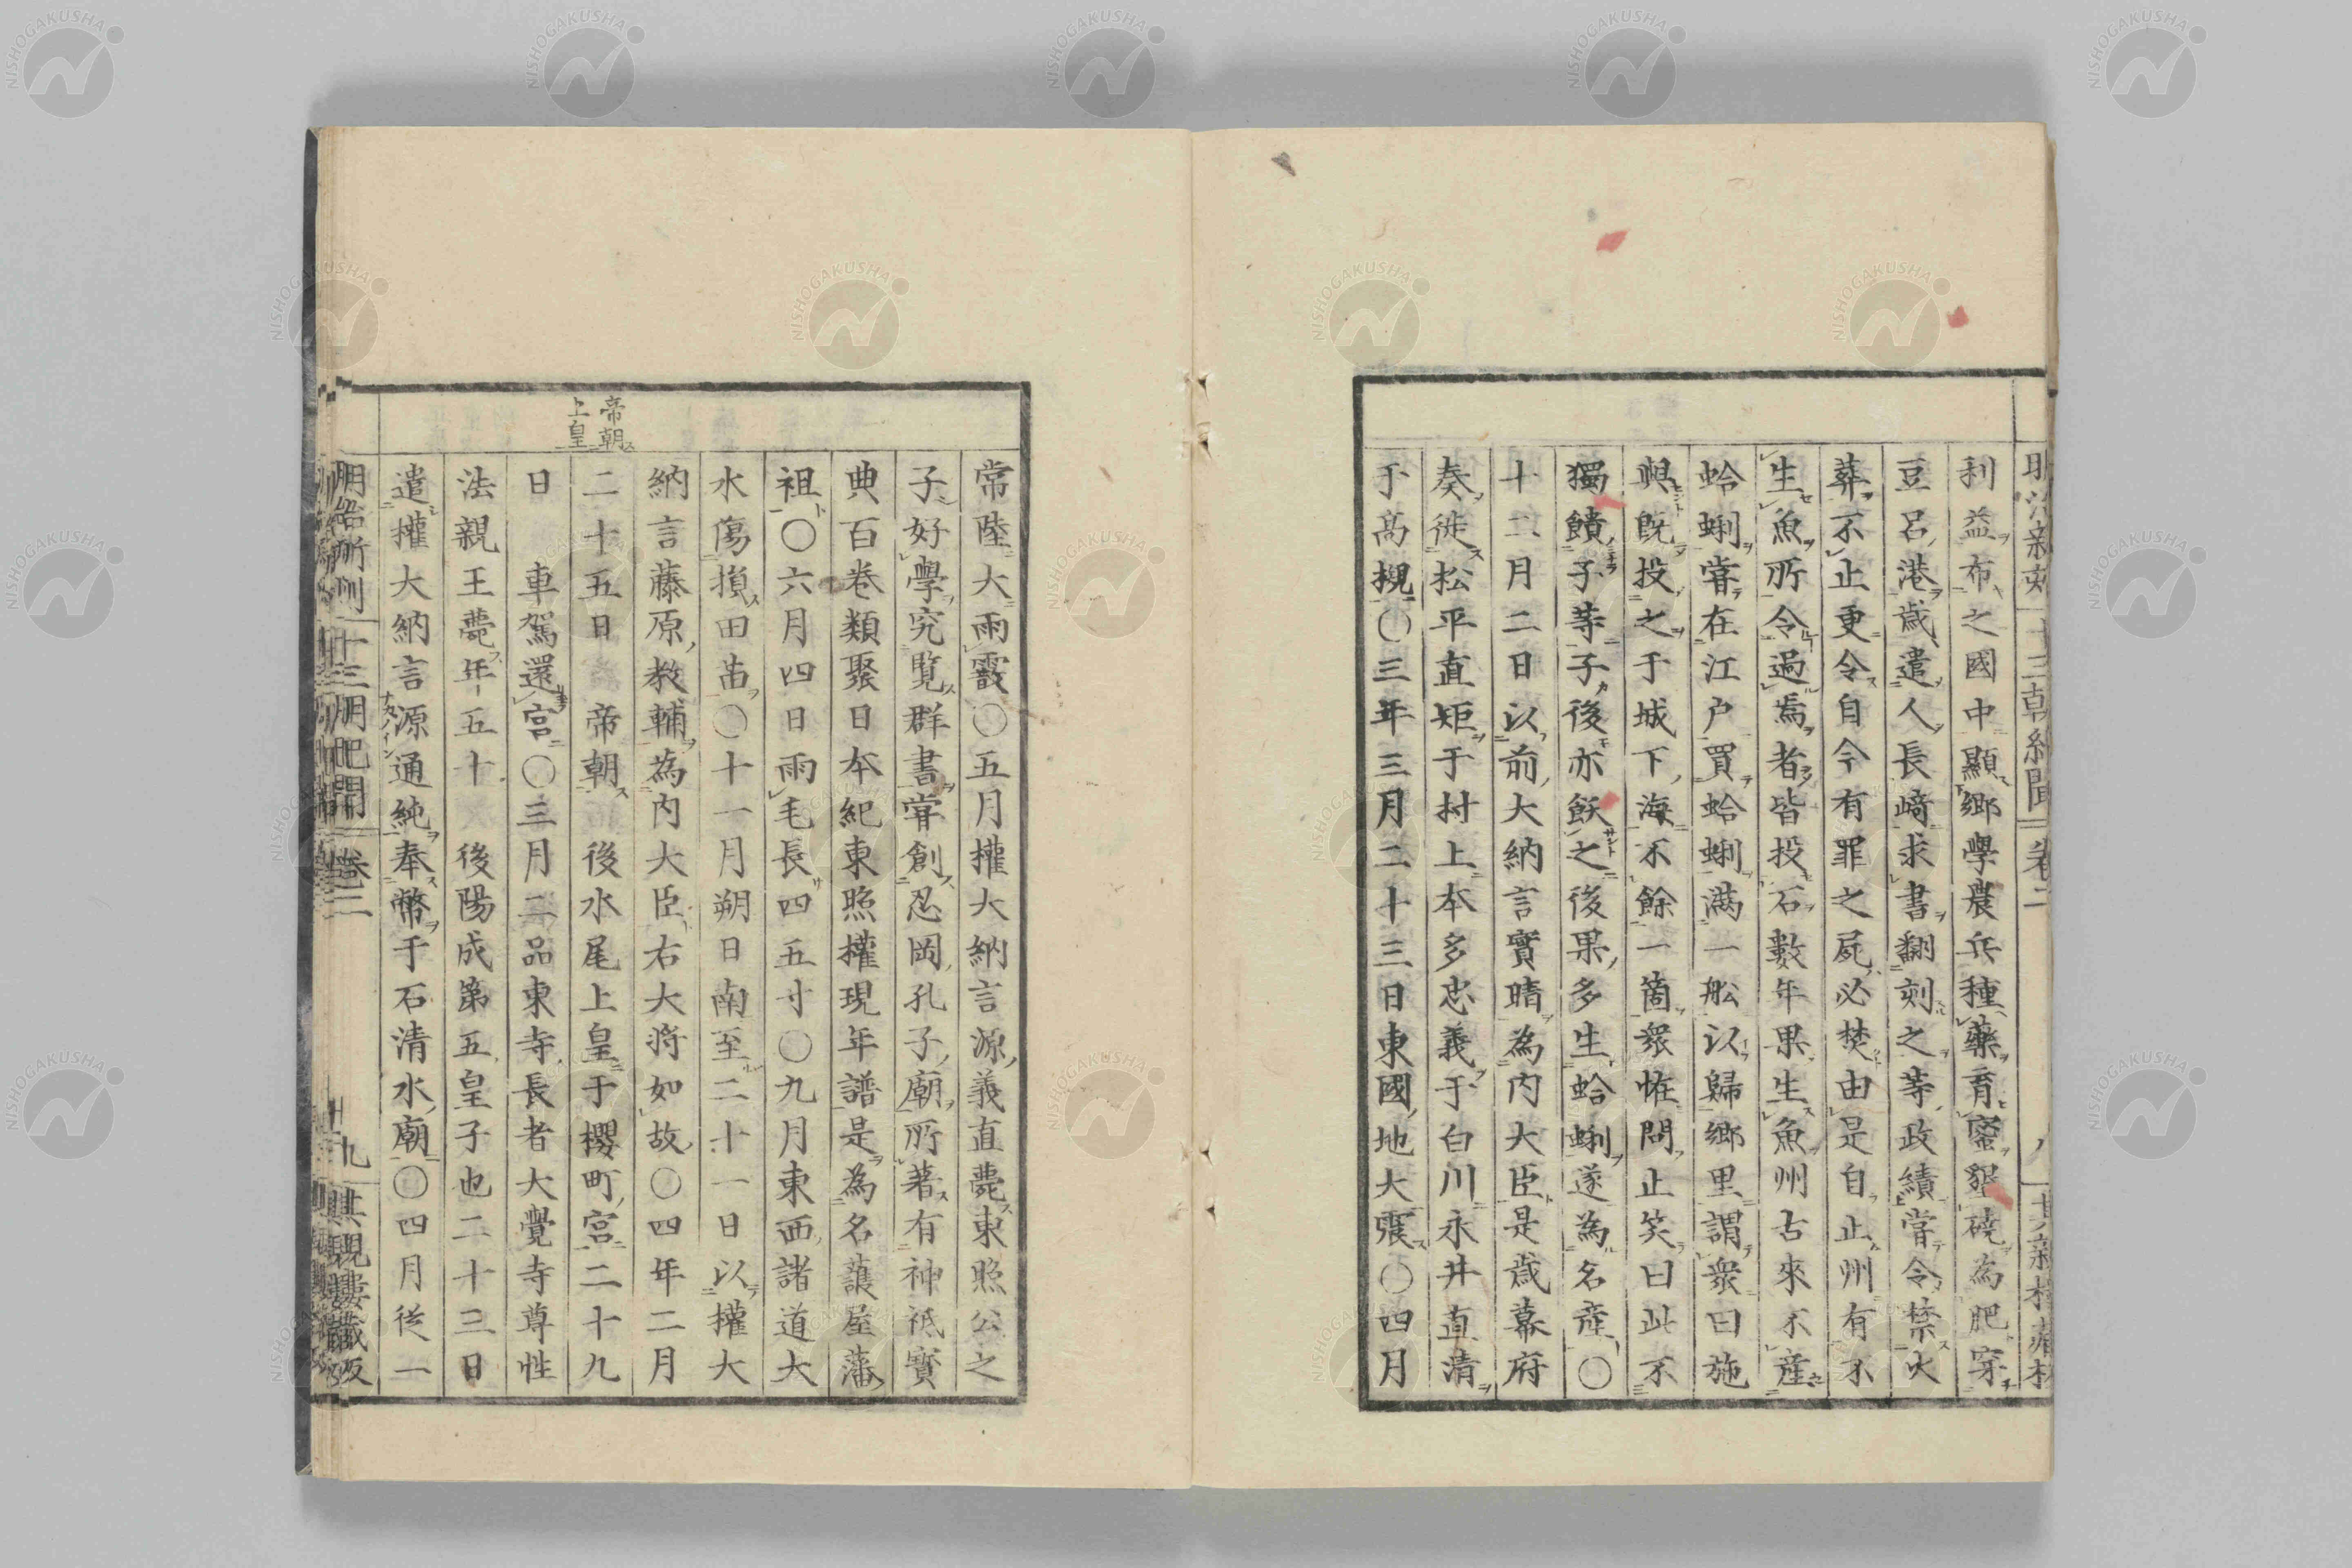 利益布之國中顯郷學農兵種藥育蜜墾磽為肥穿
豆呂港歳遣人長﨑求書翻刻之等政績甞令禁火
葬不止更令自今有罪之屍必焚由是自止州有不
生魚所令過焉者皆投石數年果生魚州古來不産
蛤蜊甞在江戸買蛤蜊満一舩以歸郷里謂衆曰施
與既投之于城下海不餘一箇衆恠問止笑曰此不
獨饋子等子後亦飫之後果多生蛤蜊遂為名産〇
十二月二日以前大納言實晴為内大臣是歳幕府
奏徙松平直矩于村上本多忠義于白川永井直清
于高槻〇三年三月二十三日東國地大震〇四月
常陸大雨霰〇五月權大納言源義直薨東照公之
子好學究覧群書甞創忍岡孔子廟所著有神祗寳
典百卷類聚日本紀東照權現年譜是為名護屋藩
祖〇六月四日雨毛長四五寸〇九月東西諸道大
水傷損田苗〇十一月朔日南至二十一日以權大
納言藤原教輔為内大臣右大将如故〇四年二月
帝朝
上皇
二十五日 帝朝 後水尾上皇于櫻町宮二十九
日 車駕還宮〇三月二品東寺長者大覺寺尊性
法親王薨年五十 後陽成第五皇子也二十三日
遣權大納言源通純奉幣于石清水廟〇四月従一
卷二
九
NISHOGAKUSHA